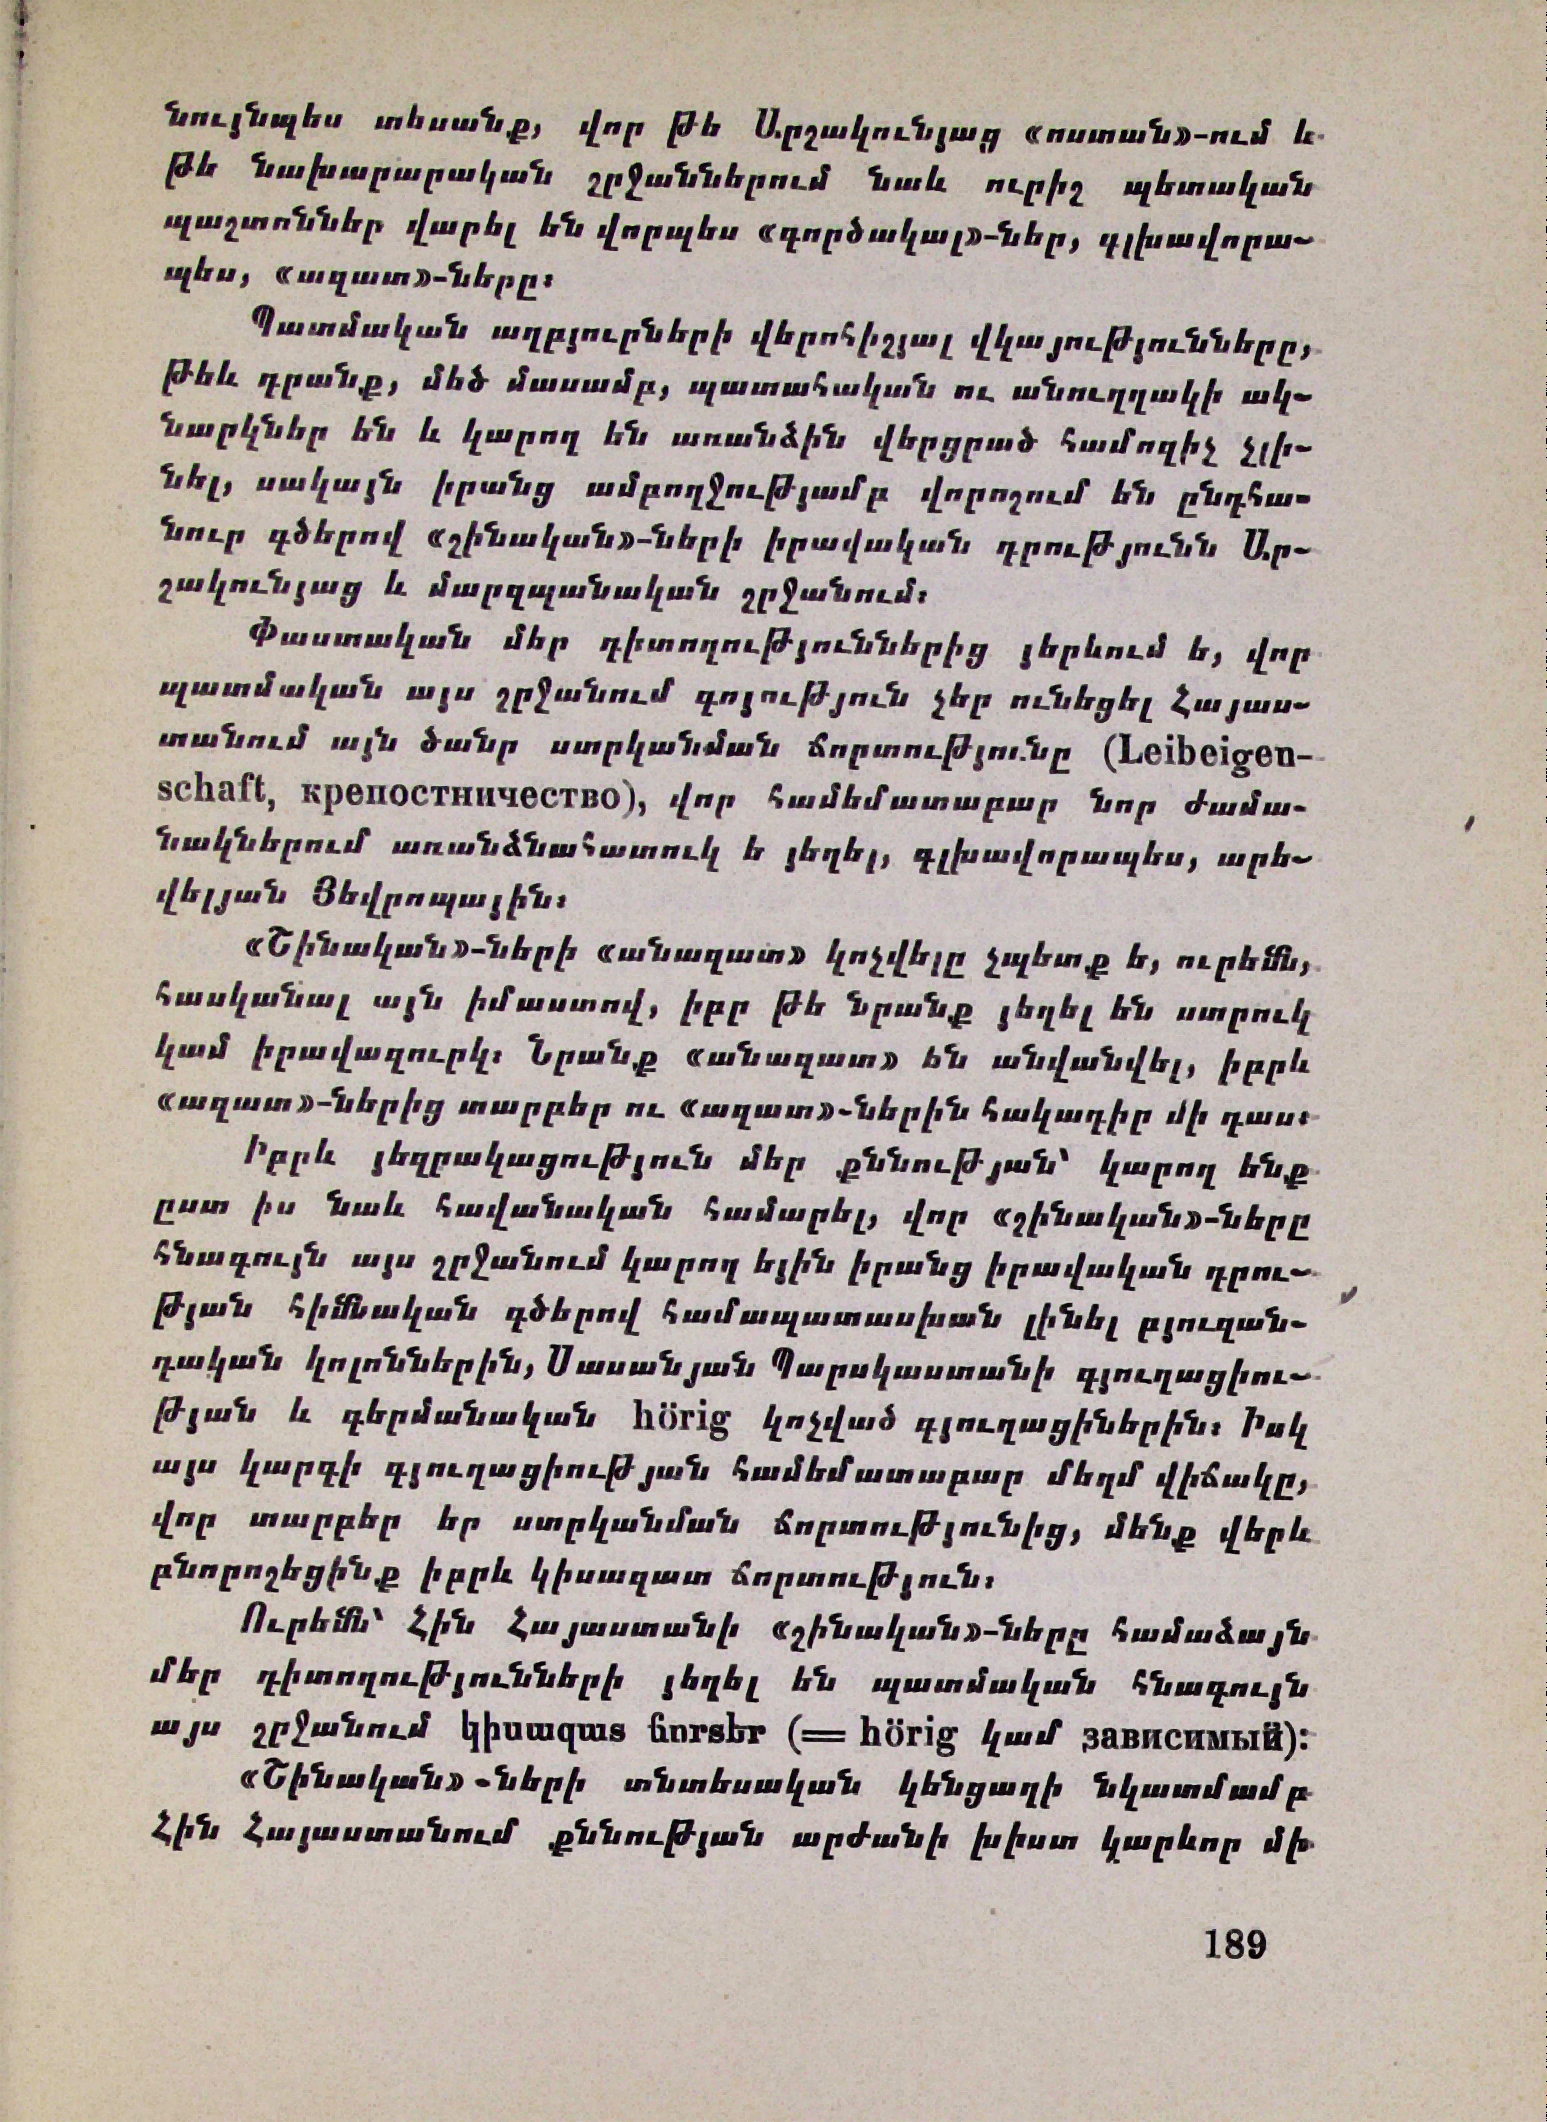 նույնպես տեսանք, վոր թե Արշակունյաց «ոստան»-ում և
թե նախարարական շրջաններում նաև ուրիշ պետական
պաշտոններ վարել են վորպես «գործակալ»-ներ, գլխավորա-
պես, «ազատ»-ները։
Պատմական աղբյուրների վերոհիշյալ վկայությունները,
թեև դրանք, մեծ մասամբ, պատահական ու անուղղակի ակ-
նարկներ են և կարող են առանձին վերցրած համոզիչ չլի-
նել, սակայն իրանց ամբողջությամբ վորոշում են ընդհա-
նուր գծերով «շինական»-ների իրավական դրությունն Ար-
շակունյաց և մարզպանական շրջանում։
Փաստական մեր դիտողություններից յերևում է, վոր
պատմական այս շրջանում գոյություն չեր ունեցել Հայաս-
տանում այն ծանր ստրկանման ճորտությունը (Leibeigen-
schaft, крепостничество), վոր համեմատաբար նոր ժամա-
նակներում առանձնահատուկ ե յեղել, գլխավորապես, արե-
վելյան Յեվրոպային։
«Շինական»-ների «անազատ» կոչվելը չպետք ե, ուրեմն,
հասկանալ այն իմաստով, իբր թե նրանք յեղել են ստրուկ
կամ իրավազուրկ։ Նրանք «անազատ» են անվանվել, իբրև
«ազատ»-ներից տարբեր ու «ազատ»-ներին հակադիր մի դաս։
Իբրև յեզրակացություն մեր քննության՝ կարող ենք
ըստ իս նաև հավանական համարել, վոր «շինական»-ները
հնագույն այս շրջանում կարող եյին իրանց իրավական դրու-
թյան հիմնական գծերով համապատասխան լինել բյուզան-
դական կոլոններին, Սասանյան Պարսկաստանի գյուղացիու-
թյան և գերմանական hörig կոչված գյուղացիներին։ Իսկ
այս կարգի գյուղացիության համեմատաբար մեղմ վիճակը,
վոր տարբեր եր ստրկանման ճորտությունից, մենք վերև
բնորոշեցինք իբրև կիսազատ ճորտություն։
Ուրեմն՝ Հին Հայաստանի «շինական»-ները համաձայն
մեր դիտողությունների յեղել են պատմական հնագույն
այս շրջանում կիսազատ ճորտեր (= hörig կամ зависимый)։
«Շինական»-ների տնտեսական կենցաղի նկատմամբ
Հին Հայաստանում քննության արժանի խիստ կարևոր մի
189